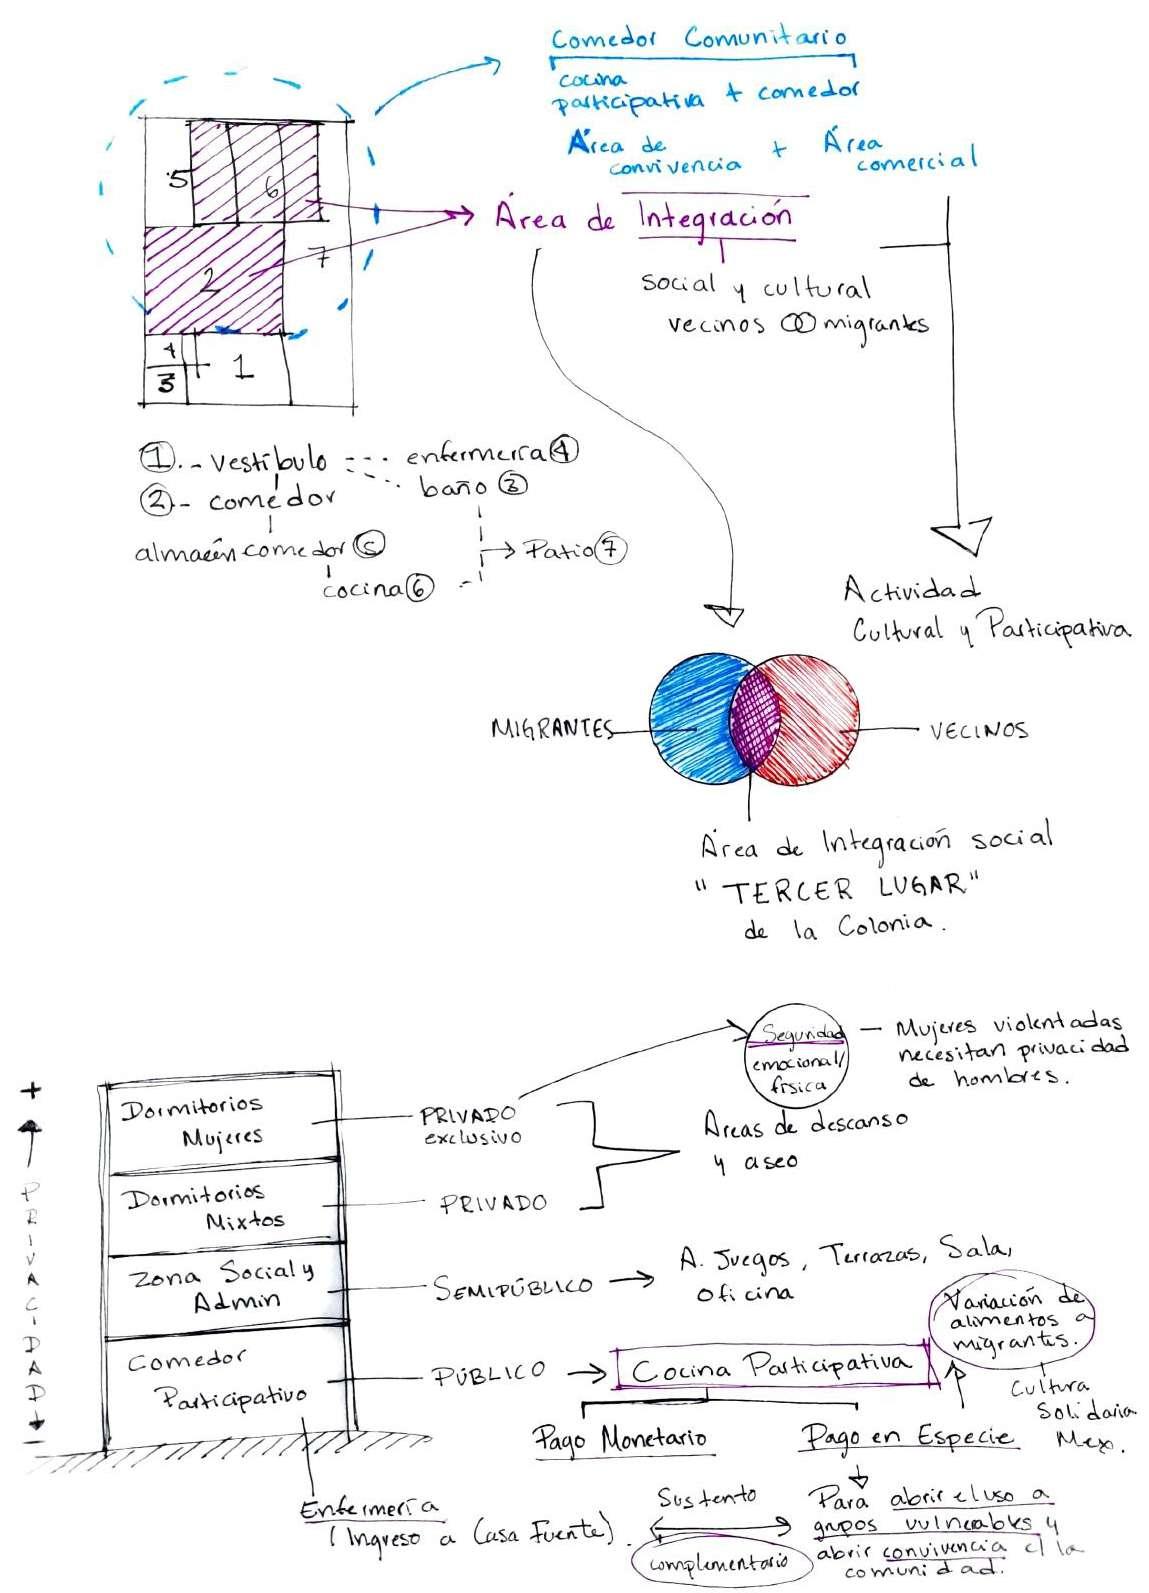 Comedor Comunitario
cocina
participativa + comedor
Área de
convivencia + Área
comercial
Área de Integración
social y cultural
vecinos migrantes
5
6
2
7
4
3
1
1.- vestíbulo --- enfermería 4
baño 3
2- comedor
almacén comedor 5
Patio 7
cocina 6
Actividad
Cultural y Participativa
MIGRANTES
VECINOS
Área de Integración social
"TERCER LUGAR"
de la Colonia.
+
PRIVACIDAD
-
Dormitorios
Mujeres
PRIVADO
exclusivo
Seguridad
emocional/
física
— Mujeres violentadas
necesitan privacidad
de hombres.
Áreas de descanso
y aseo
Dormitorios
Mixtos
PRIVADO
Zona Social y
Admin
SEMIPÚBLICO
A. Juegos, Terrazas, Sala,
oficina
Comedor
Participativo
PÚBLICO
Cocina Participativa
Variación de
alimentos a
migrantes.
Cultura
Solidaria
Mex.
Pago Monetario
Pago en Especie
Enfermería
(Ingreso a Casa Fuente).
Sustento
complementario
Para abrir el uso a
grupos vulnerables y
abrir convivencia c/ la
comunidad.